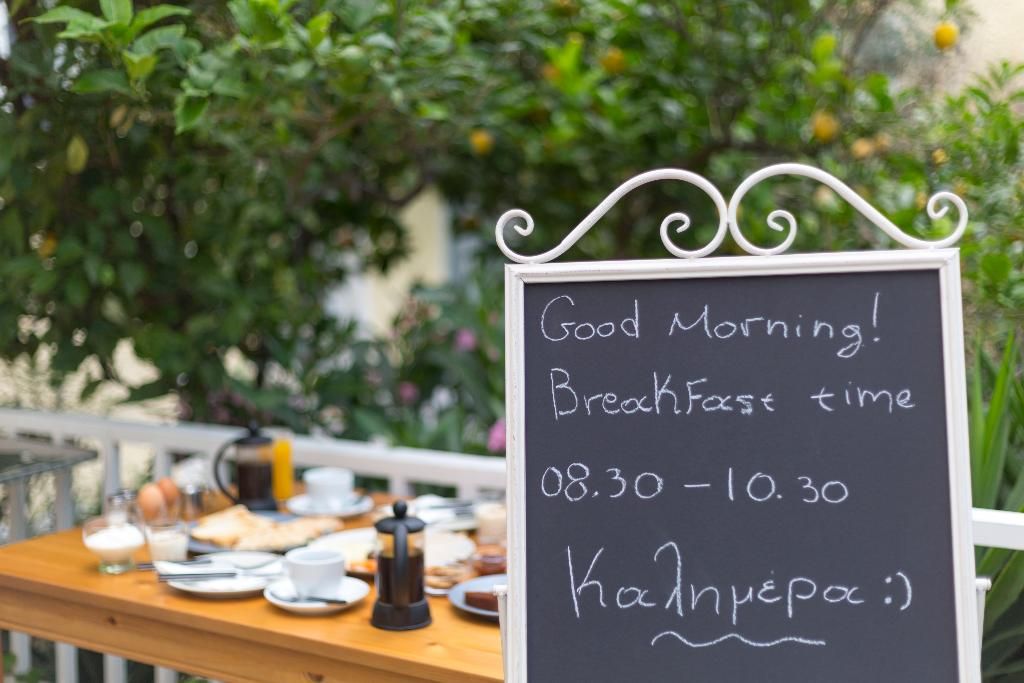 Good Morning!
Breakfast time
08.30 - 10.30
Καλημέρα :)